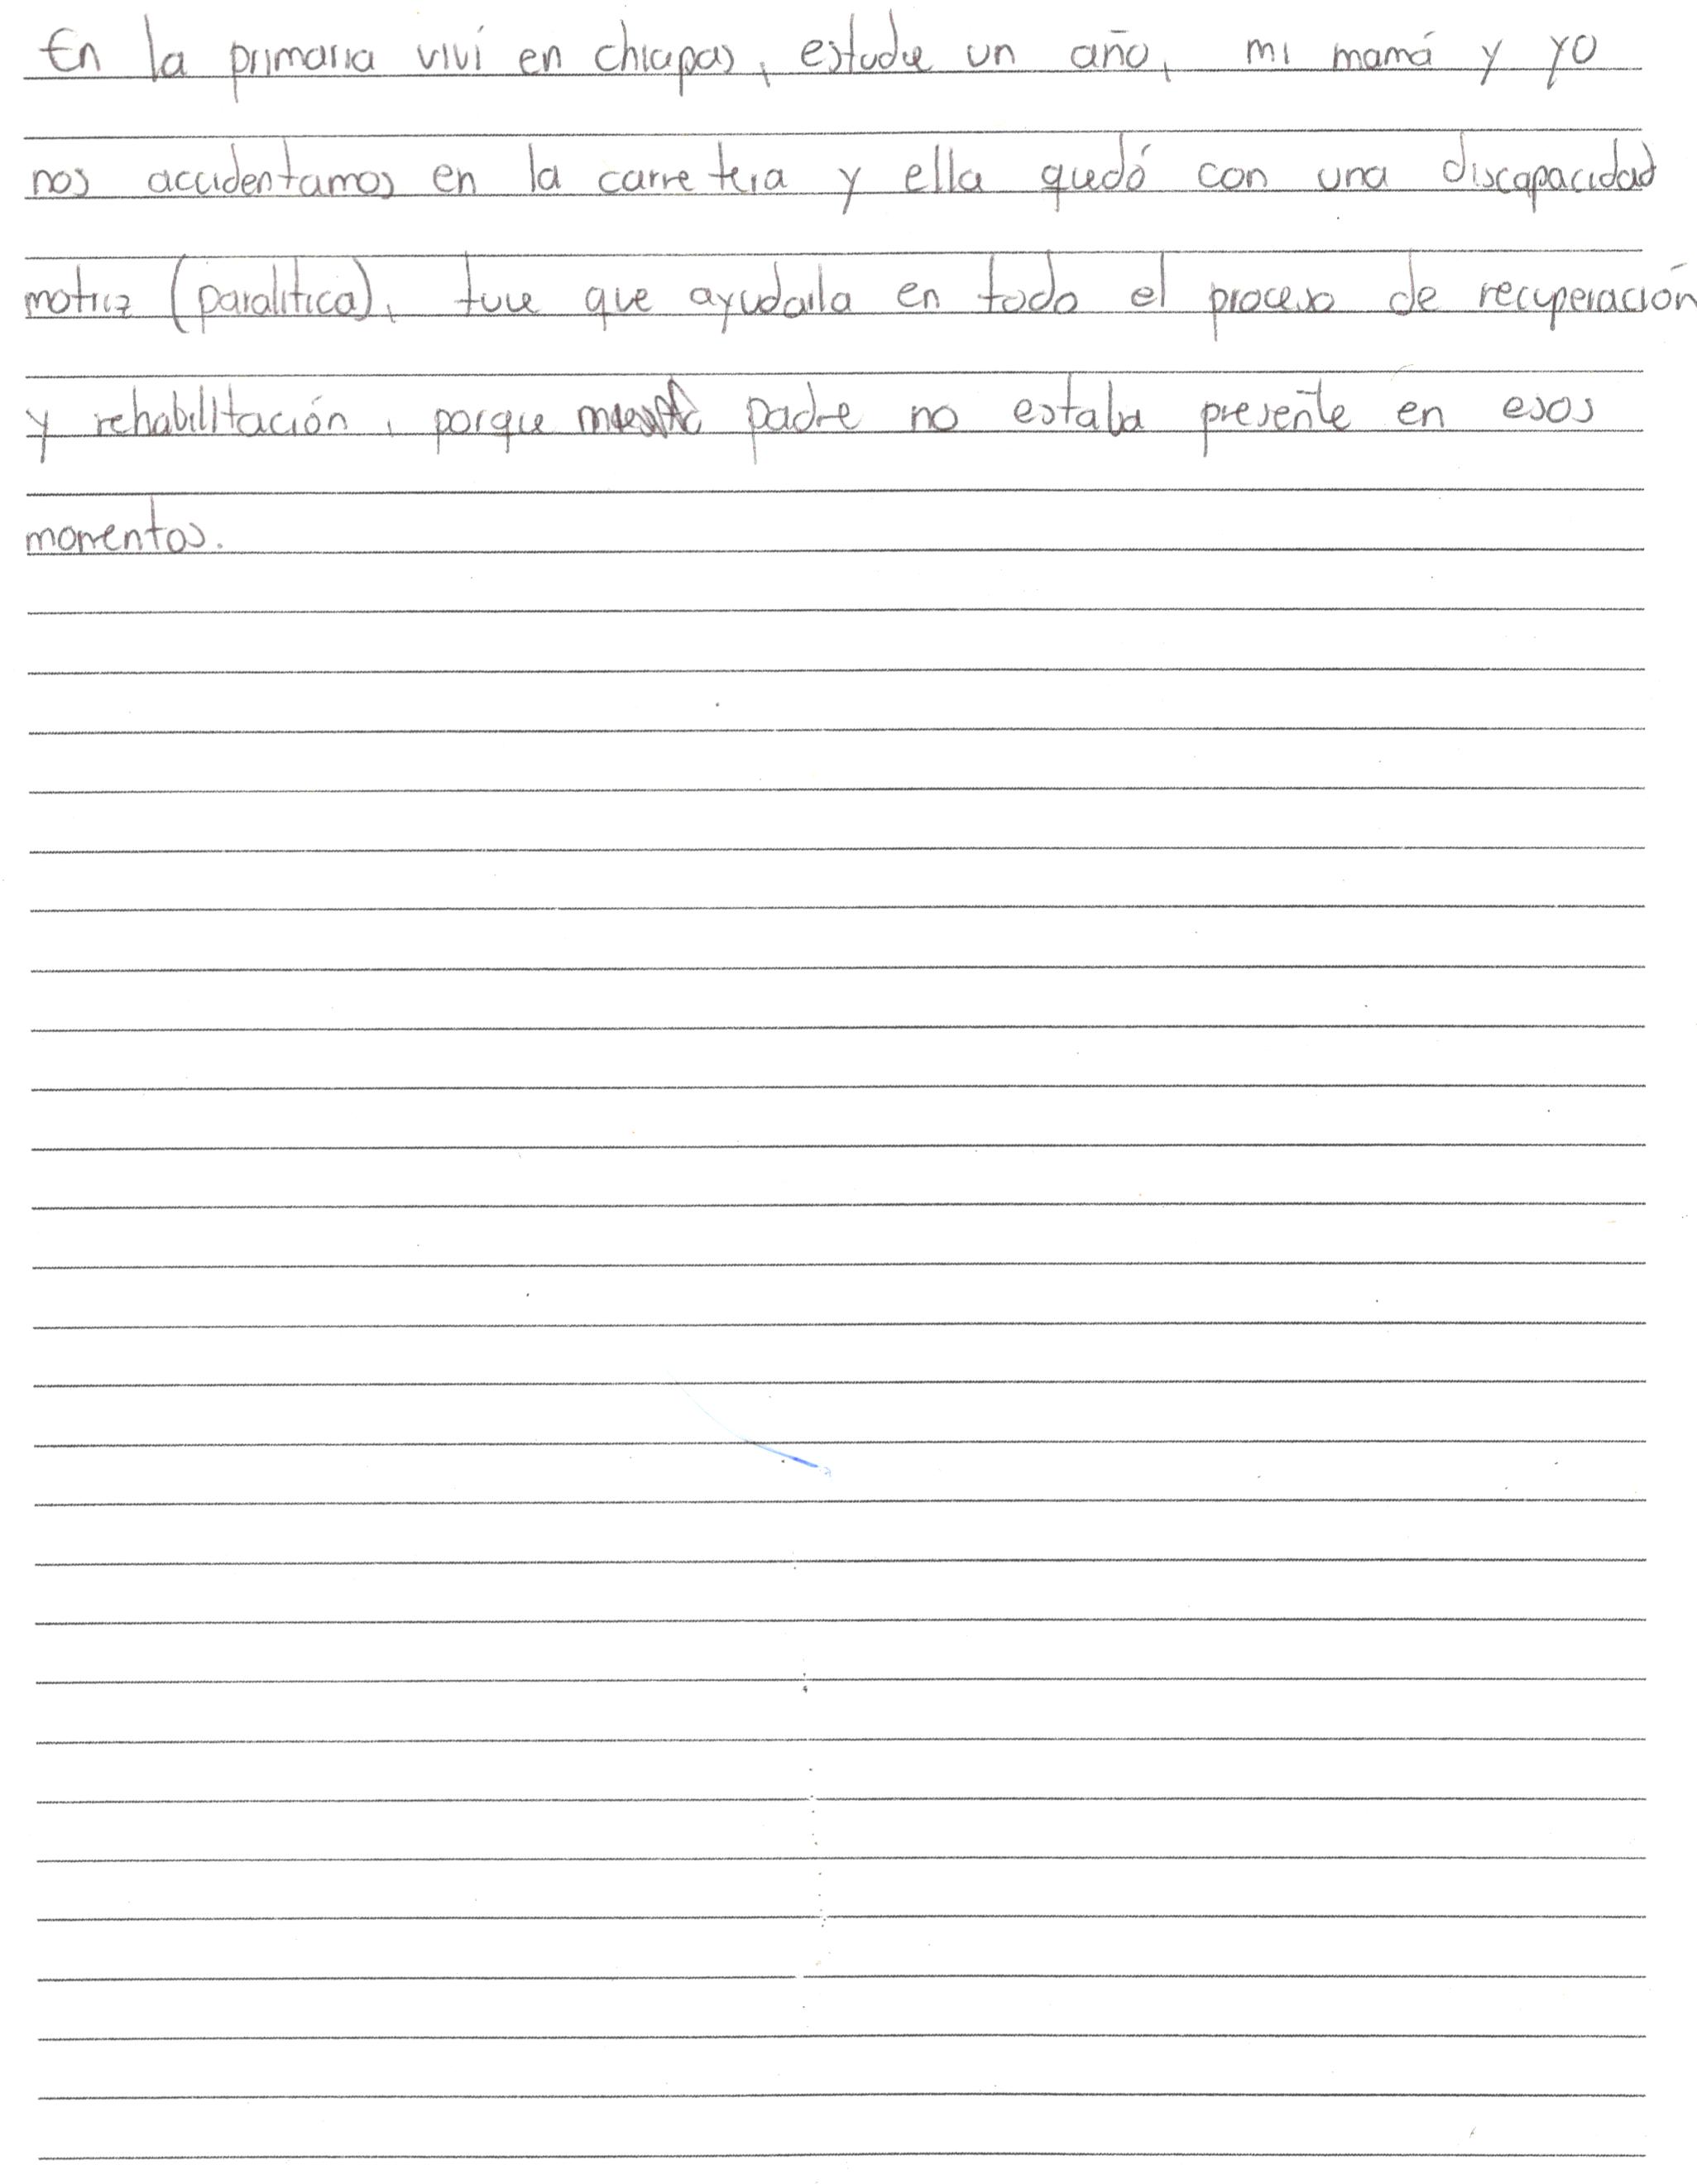 En la primaria viví en chiapas, estudie un año, mi mamá y yo
nos accidentamos en la carretera y ella quedó con una discapacidad
motriz (paralitica), tuve que ayudarla en todo el proceso de recuperación
y rehabilitación, porque padre no estaba presente en esos
momentos.